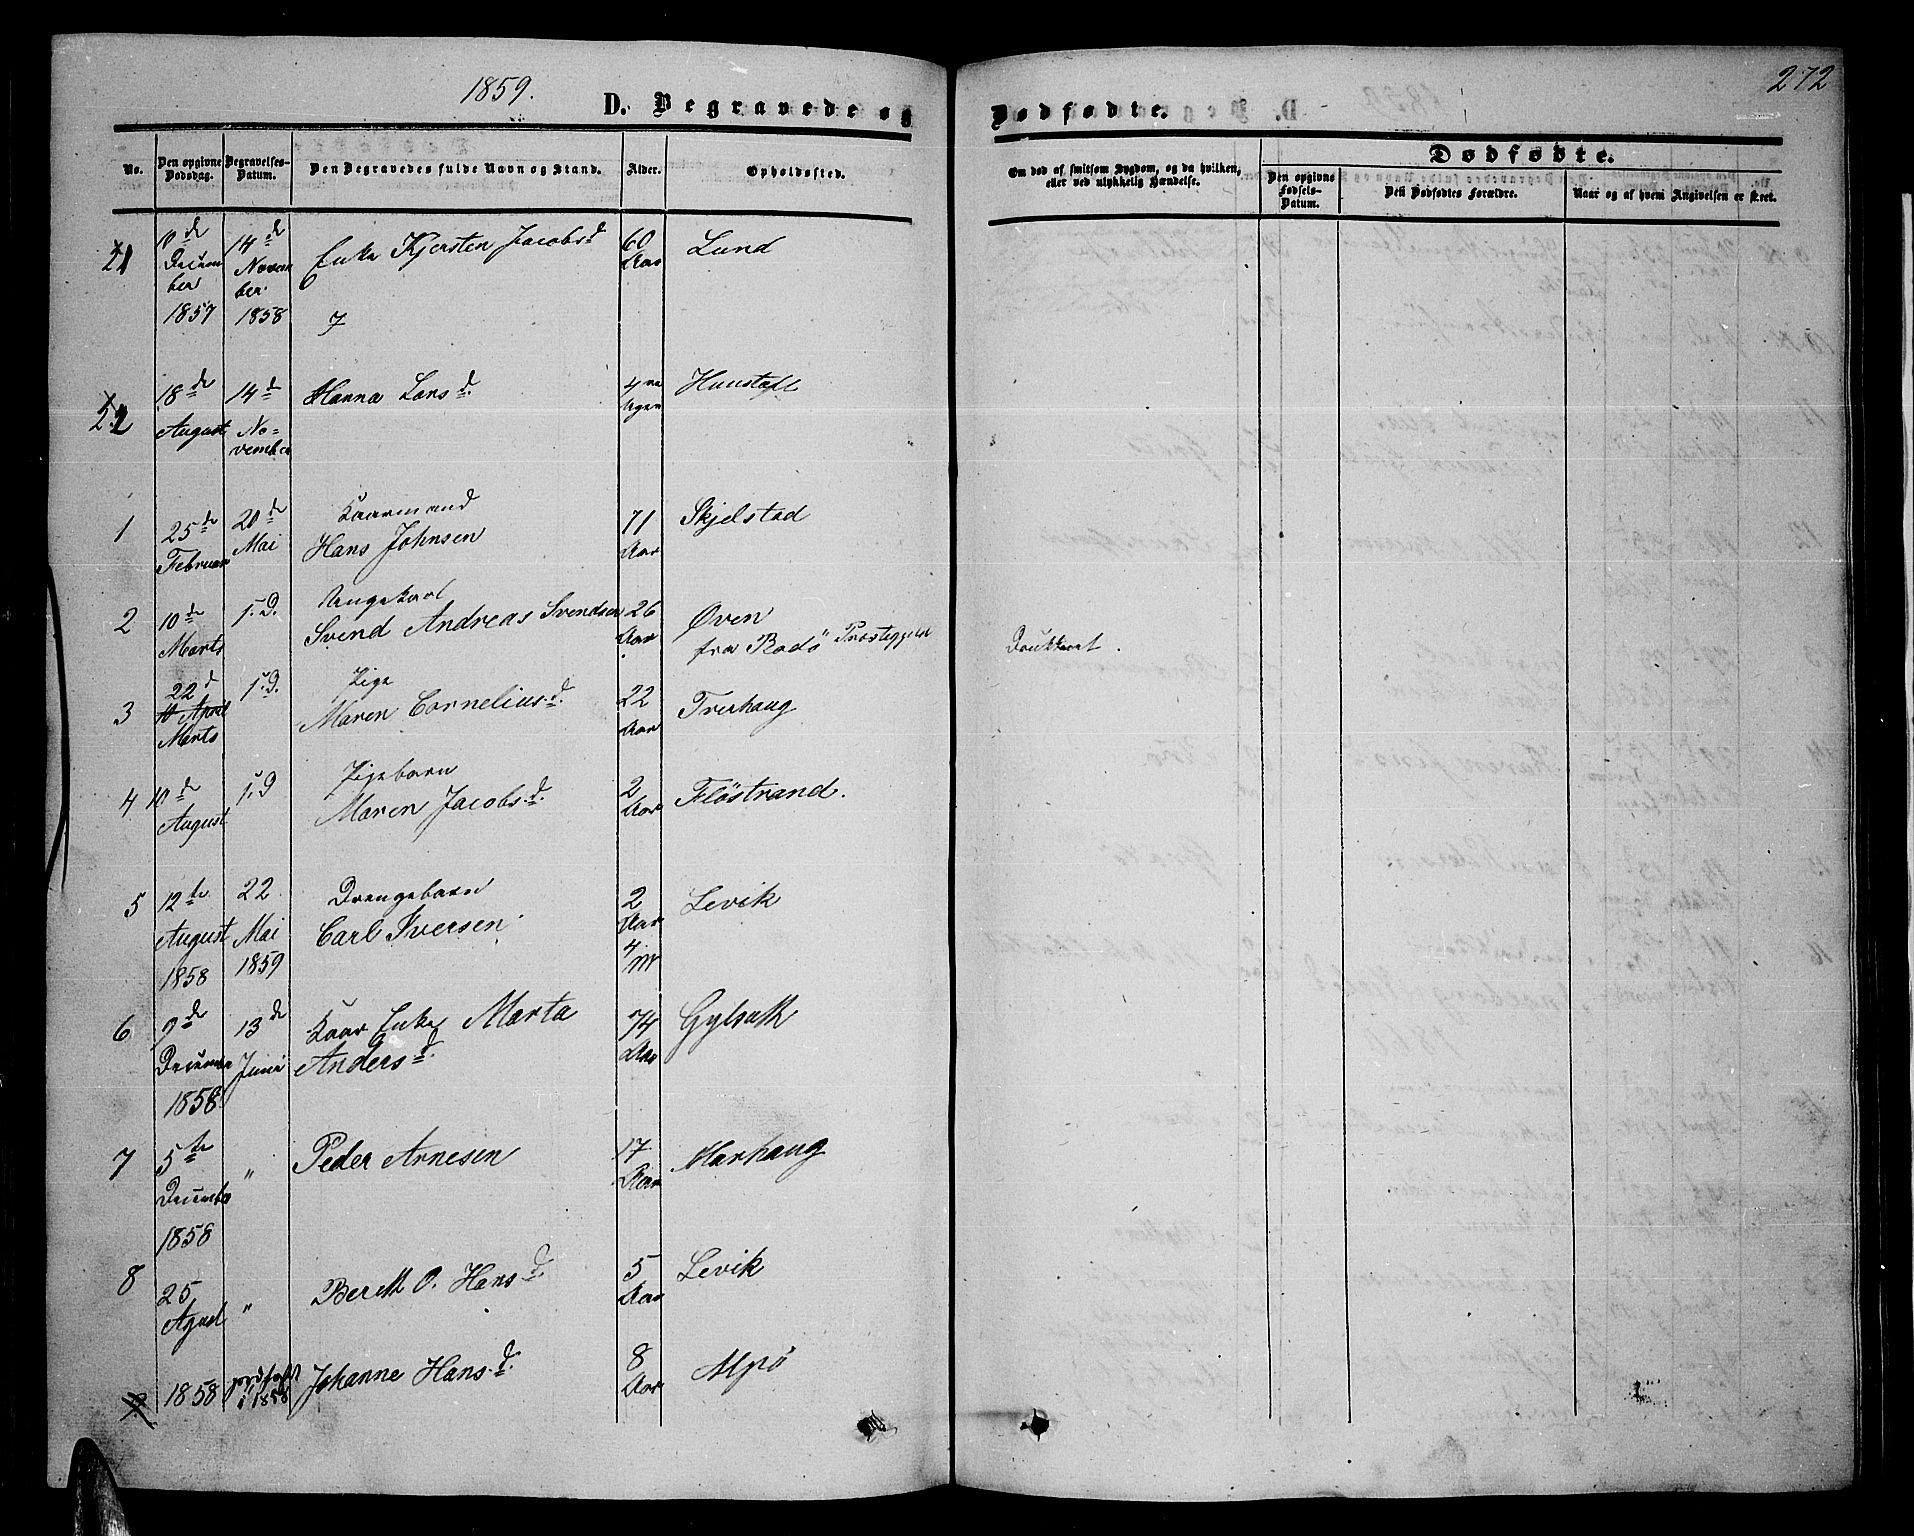 1859.
272
D. Begravede og Dødfødte.
No. Den opgivne Dødsdag. Begravelses-Datum. Den Begravedes fulde Navn og Stand. Alder. Opholdssted. Om død af smitsom Sygdom, og da hvilken, eller ved ulykkelig Hændelse. Dødfødte.
Den opgivne Fødsels-Datum. Det Dødfødtes Forældre. Naar og af hvem Angivelsen er skeet.
21 14d Enke Kjersten Jacobsd 60 Lund
December November Aar
1857 1858
22 18de 14d Hanna Larsd. 4re
August November Uger
1 25de 20de Kaarmand 71 Skjelstad
Februar Mai Hans Johnsen Aar
2 10de s.D. Ungekarl 26 Øven
Marts Svend Andreas Svendsen Aar fra Rødö Præstegjeld Drukknet.
3 22d s.D. Pige 22 Tverhaug
10 April Maren Corneliusd. Aar
Marts
4 10de s.D. Pigebarn 2 Flöstrand.
August Maren Jacobsd. Aar
5 12te 22 Drengebarn 2 Levik
August Mai Carl Iversen Aar
1858 1859 4 M
6 9de 13de Kaar Enke Marta 74
December Juni Andersd. Aar
1858
7 5te " Peder Arnesen 17 Marhaug
December Aar
1858
8 25 " Berett O. Hansd. 5 Levik
August Aar
1858 jordfæst i 1858 Johanne Hansd. 8
Aar